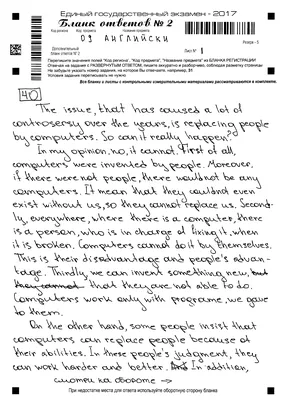 Единый государственный экзамен - 2017
Бланк ответов № 2
Код региона Код предмета Название предмета
09 АНГЛИЙСКИ
Резерв - 5
Дополнительный бланк ответов № 2
Лист № 1
Перепишите значения полей "Код региона", "Код предмета", "Название предмета" из БЛАНКА РЕГИСТРАЦИИ.
Отвечая на задания с РАЗВЕРНУТЫМ ОТВЕТОМ, пишите аккуратно и разборчиво, соблюдая разметку страницы.
Не забудьте указать номер задания, на которое Вы отвечаете, например, 31
Условия задания переписывать не нужно.
Все бланки и листы с контрольными измерительными материалами рассматриваются в комплекте.
40
The issue, that has caused a lot of
controversy over the years, is replacing people
by computers. So can it really happen?
In my opinion, no, it cannot. First of all,
computers were invented by people. Moreover,
if there were not people, there wouldnot be any
computers. It mean that they couldnot even
exist without us, so they cannot replace us. Second-
ly, everywhere, where there is a computer, there
is a person, who is in charge of fixing it, when
it is broken. Computers cannot do it by themselves.
This is their disadvantage and people's advan-
tage. Thirdly, we can invent something new, but
they cannot that they are not able to do.
Computers work only with programs, we gave
to them.
On the other hand, some people insist that
computers can replace people because of
their abilities. In these people's judgment, they
can work harder and better. And In addition,
смотри на обороте →
При недостатке места для ответа используйте оборотную сторону бланка